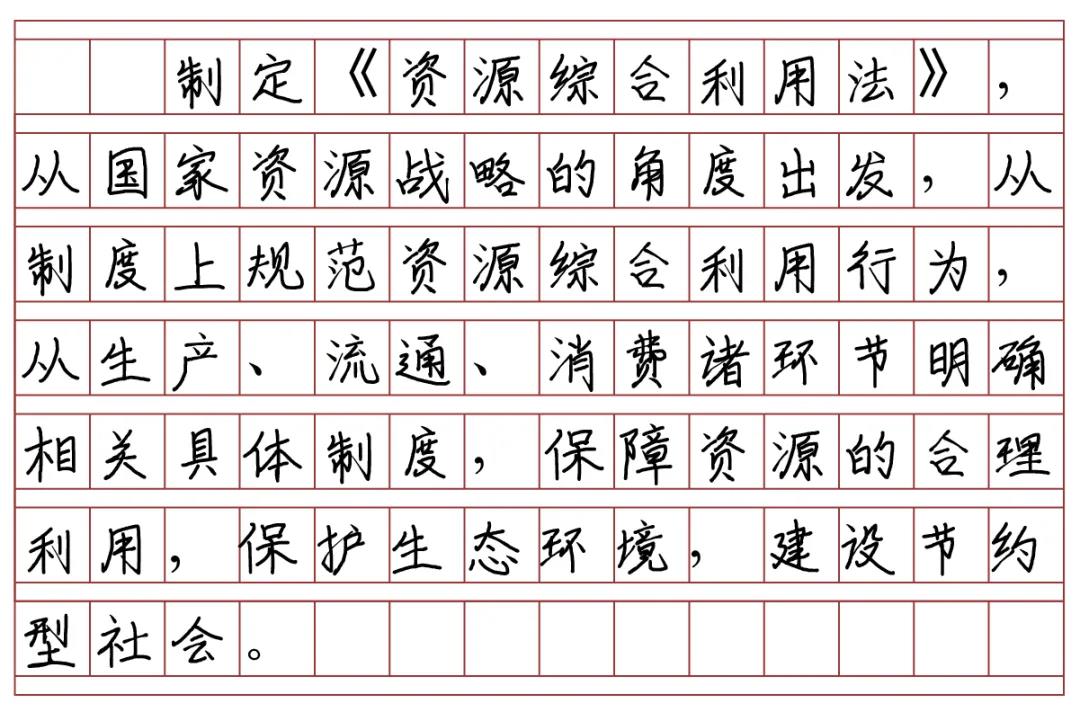 制定《资源综合利用法》，
从国家资源战略的角度出发，从
制度上规范资源综合利用行为，
从生产、流通、消费诸环节明确
相关具体制度，保障资源的合理
利用，保护生态环境，建设节约
型社会。